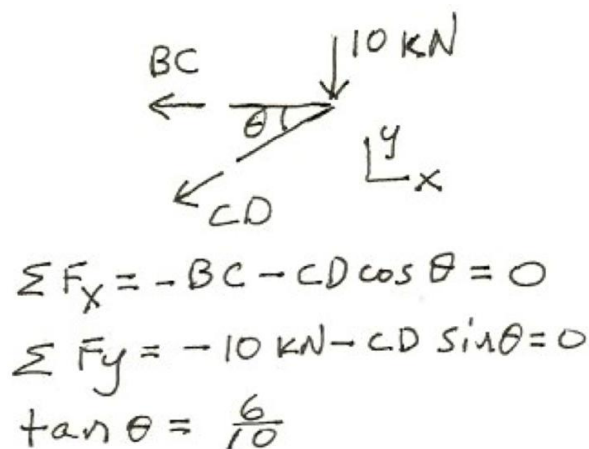 10 KN
BC
θ
y
x
CD
ΣFx = -BC - CD cos θ = 0
ΣFy = -10 KN - CD sin θ = 0
tan θ = 6/10